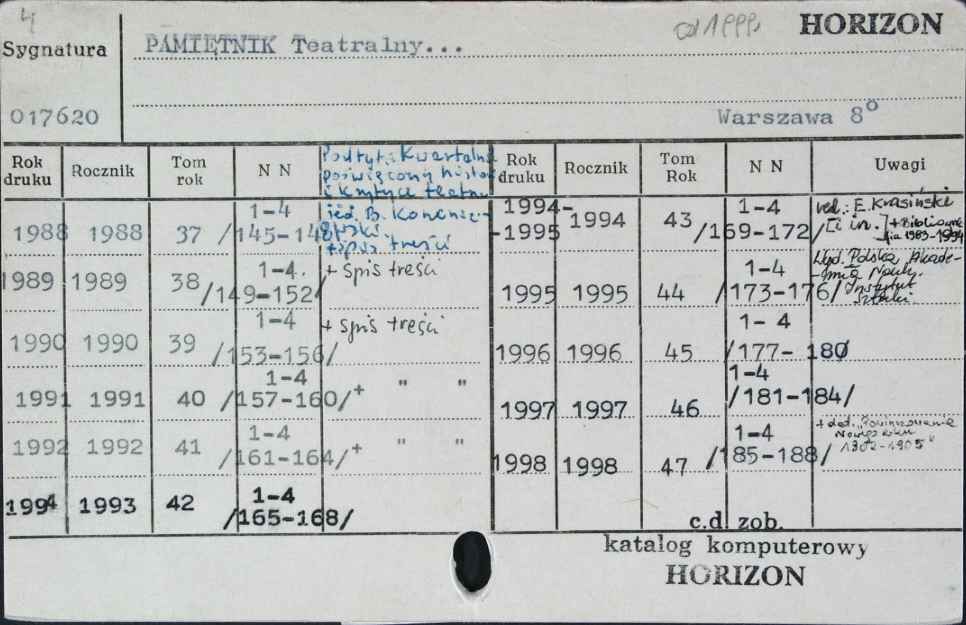 4
od 1999
HORIZON
Sygnatura
PAMIĘTNIK Teatralny...
017620
Warszawa 8°
Rok druku Rocznik Tom rok N N
Podtyt.: Kwartalnik
poświęcony historii
i krytyce teatru
1988 1988 37 1-4 /145-148/
red. B.
+ spis treści
1989 1989 38 1-4. /149-152/ + spis treści
1990 1990 39 1-4 /153-156/ + spis treści
1991 1991 40 1-4 /157-160/ + " "
1992 1992 41 1-4 /161-164/ + " "
1994 1993 42 1-4 /165-168/
Rok druku Rocznik Tom Rok N N Uwagi
1994-1995 1994 43 1-4 /169-172/
red.: E. Krasiński
i in. + Bibliografia 1983-1994
1995 1995 44 1-4 /173-176/
Wyd. Polska Akade-
mia Nauk.
Instytut
Sztuki.
1996 1996 45 1- 4 /177- 180/
1997 1997 46 1-4 /181-184/
1998 1998 47 1-4 /185-188/
+ dod.
1902-1905"
c.d. zob.
katalog komputerowy
HORIZON